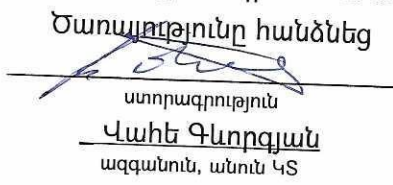 Ծառայությունը հանձնեց
ստորագրություն
Վահե Գևորգյան
ազգանուն, անուն ԿՏ